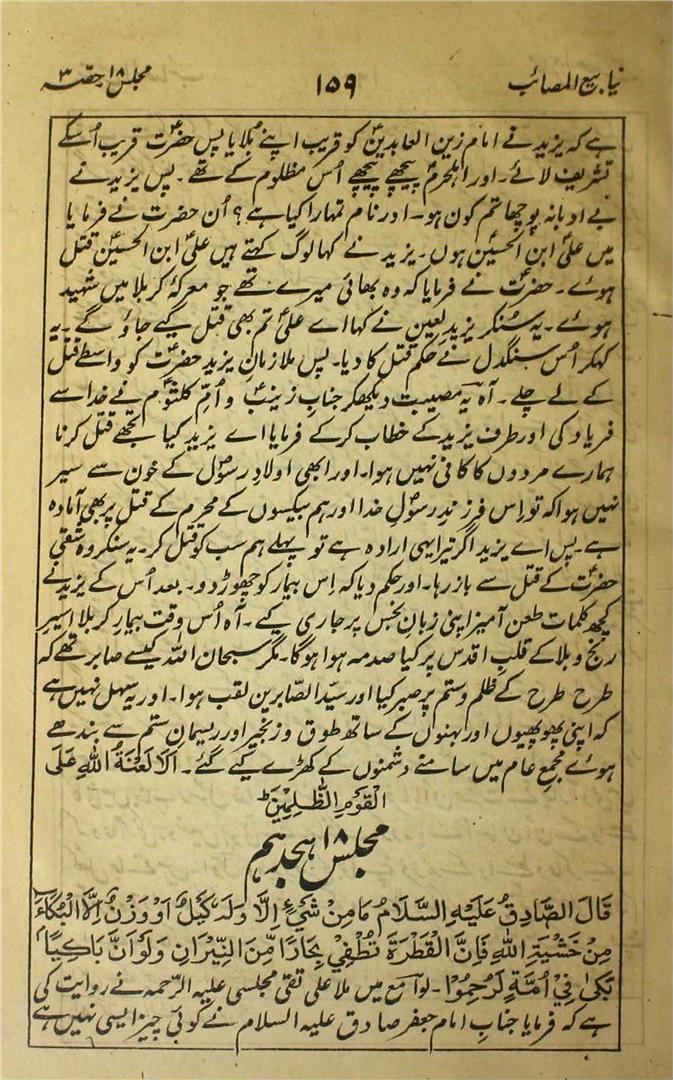 نیابیع المصائب ۱۵۹ مجلس ۱۸ حصّہ ۳
ہے کہ یزید نے امام زین العابدینؑ کو قریب اپنے بُلایا پس حضرتؑ قریب اُسکے
تشریف لائے۔ اور اہلحرمؑ پیچھے پیچھے اُس مظلوم کے تھے۔ پس یزید نے
بے ادبانہ پوچھا تم کون ہو۔ اور نام تمہارا کیا ہے؟ اُن حضرت نے فرمایا
میں علیؑ ابن الحسینؑ ہوں۔ یزید نے کہا لوگ کہتے ہیں علیؑ ابن الحسینؑ قتل
ہوئے۔ حضرتؑ نے فرمایا کہ وہ بھائی میرے تھے جو معرکۂ کربلا میں شہید
ہوئے۔ یہ سُنکر یزید لعین نے کہا اے علیؑ تم بھی قتل کیے جاؤ گے۔ یہ
کہکر اُس سنگدل نے حکم قتل کا دیا۔ پس ملازمانِ یزید حضرتؑ کو واسطے قتل
کے لے چلے۔ آہ یہ مصیبت دیکھکر جناب زینبؑ و اُمِّ کلثومؑ نے خدا سے
فریاد کی اور طرف یزید کے خطاب کر کے فرمایا اے یزید کیا تجھے قتل کرنا
ہمارے مردوں کا کافی نہیں ہوا۔ اور ابھی اولادِ رسولؐ کے خون سے سیر
نہیں ہوا کہ تو اِس فرزندِ رسولِ خدا اور ہم بیکسوں کے محرم کے قتل پر بھی آمادہ
ہے۔ پس اے یزید اگر تیرا یہی ارادہ ہے تو پہلے ہم سب کو قتل کر۔ یہ سنکر وہ شقی
حضرتؑ کے قتل سے باز رہا۔ اور حکم دیا کہ اِس بیمار کو چھوڑ دو۔ بعد اُس کے یزید نے
کچھ کلمات طعن آمیز اپنی زبانِ نجس پر جاری کیے۔ آہ اُس وقت بیمارِ کربلا اسیرِ
رنج و بلا کے قلبِ اقدس پر کیا صدمہ ہوا ہوگا۔ مگر سبحان اللہ کیسے صابر تھے کہ
طرح طرح کے ظلم و ستم پر صبر کیا اور سیّد الصّابرین لقب ہوا۔ اور یہ سہل نہیں ہے
کہ اپنی پھوپھیوں اور بہنوں کے ساتھ طوق و زنجیر اور ریسمانِ ستم سے بندھے
ہوئے مجمعِ عام میں سامنے دشمنوں کے کھڑے کیے گئے۔ اَلَا لَعْنَةُ اللّٰهِ عَلَى
الْقَوْمِ الظّٰلِمِيْنَ ط
مجلس ۱۸ ہجدہم
قَالَ الصَّادِقُ عَلَيْهِ السَّلَامُ مَا مِنْ شَيْءٍ إِلَّا وَلَهٗ كَيْلٌ اَوْ وَزْنٌ اِلَّا الْبُكَاءَ
مِنْ خَشْيَةِ اللّٰهِ فَاِنَّ الْقَطْرَةَ تُطْفِيْ بِحَارًا مِّنَ النِّيْرَانِ وَلَوْ اَنَّ بَاكِيًا
بَكٰى فِيْ اُمَّةٍ لَرُحِمُوْا۔ لوامع میں ملا علی تقی مجلسی علیہ الرّحمہ نے روایت کی
ہے کہ فرمایا جناب امام جعفر صادق علیہ السلام نے کوئی چیز ایسی نہیں ہے